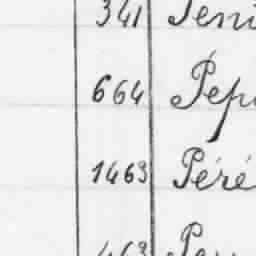 341 Peni
664 Pépi
1463 Péré
463